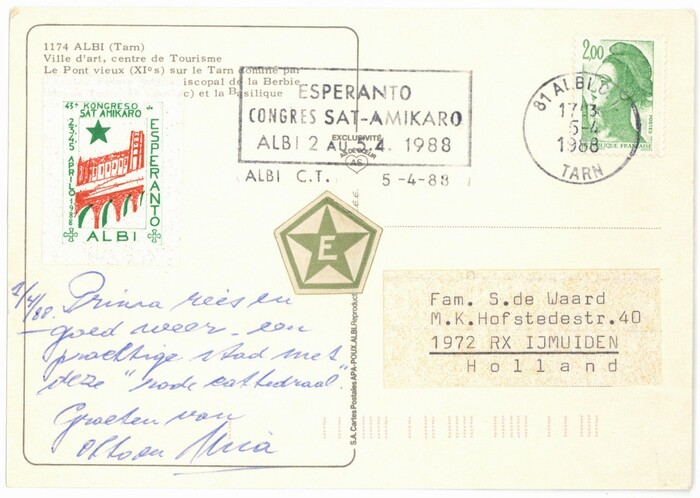 1174 ALBI (Tarn)
Ville d'art, centre de Tourisme
Le Pont vieux (XI°s) sur le Tarn dominé par
iscopal de la Berbie
c) et la Basilique
43ª KONGRESO de
SAT AMIKARO
2345 APRILO 1988
ESPERANTO
ALBI
ESPERANTO
CONGRES SAT-AMIKARO
ALBI 2 AU 5.4. 1988
ALBI C.T. 5-4-88
EXCLUSIVITÉ
AS DE CŒUR
AS
2,00
POSTES
RÉPUBLIQUE FRANÇAISE
81 ALBI C.T.
17H3
5-4
1988
TARN
E
S.A. Cartes Postales APA-POUX ALBI. Reproduct
Fam. S.de Waard
M.K.Hofstedestr.40
1972 RX IJMUIDEN
Holland
2/4/88. Prima reis en
goed weer - een
prachtige stad met
deze "rode cathedraal".
Groeten van
Otto en Mia